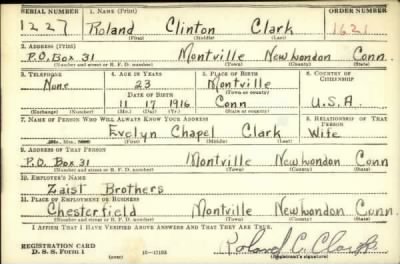 SERIAL NUMBER 1. NAME (Print) ORDER NUMBER
1227 Roland Clinton Clark 1621
(First) (Middle) (Last)
2. ADDRESS (Print)
P.O. Box 31 Montville New London Conn.
(Number and street or R. F. D. number) (Town) (County) (State)
3. TELEPHONE 4. AGE IN YEARS 5. PLACE OF BIRTH 6. COUNTRY OF CITIZENSHIP
None 23 Montville
DATE OF BIRTH (Town or county)
11 17 1916 Conn U.S.A.
(Exchange) (Number) (Mo.) (Day) (Yr.) (State or country)
7. NAME OF PERSON WHO WILL ALWAYS KNOW YOUR ADDRESS 8. RELATIONSHIP OF THAT PERSON
Evelyn Chapel Clark Wife
(First) (Middle) (Last)
9. ADDRESS OF THAT PERSON
P.O. Box 31 Montville New London Conn
(Number and street or R. F. D. number) (Town) (County) (State)
10. EMPLOYER'S NAME
Zaist Brothers
11. PLACE OF EMPLOYMENT OR BUSINESS
Chesterfield Montville New London Conn.
(Number and street or R. F. D. number) (Town) (County) (State)
I AFFIRM THAT I HAVE VERIFIED ABOVE ANSWERS AND THAT THEY ARE TRUE.
REGISTRATION CARD
D. S. S. Form 1 (over) Roland C. Clark
(Registrant's signature)